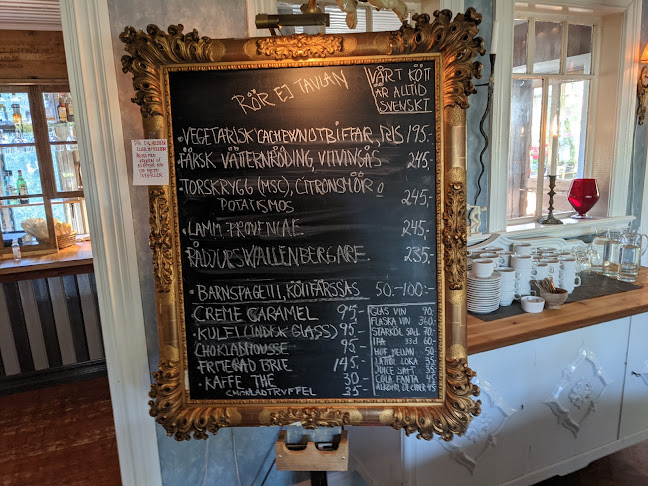 RÖR EJ TAVLAN
VÅRT KÖTT
ÄR ALLTID
SVENSKT
• VEGETARISK CACHEWNÖTBIFFAR, RIS 195-
• FÄRSK VÄTTERNRÖDING, VITVINSÅS 245-
• TORSKRYGG (MSC), CITRONSMÖR 245-
POTATISMOS
• LAMM PROVENCAL 245-
RÅDJURSWALLENBERGARE 235-
• BARNSPAGETTI, KÖTTFÄRSSÅS 50-100:-
CREME CARAMEL 95-
• KULFI (INDISK GLASS) 95-
CHOKLADMOUSSE 95-
FRITERAD BRIE 145-
• KAFFE THE 30-
CHOKLADTRYFFEL 35-
GLAS VIN 90.
FLASKA VIN 360.
STARKÖL 50CL 70
IPA 33cl 60
HOF MELLAN 50.
LÄTTÖL LOKA 35
JUICE SAFT 35
COLA FANTA 45
ALKOHOLFRI CIDER 45